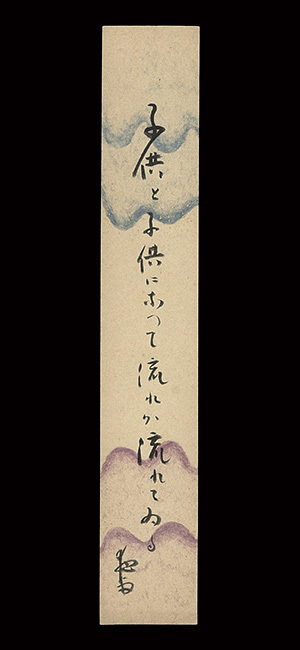 子供と子供にあつて流れが流れてゐる